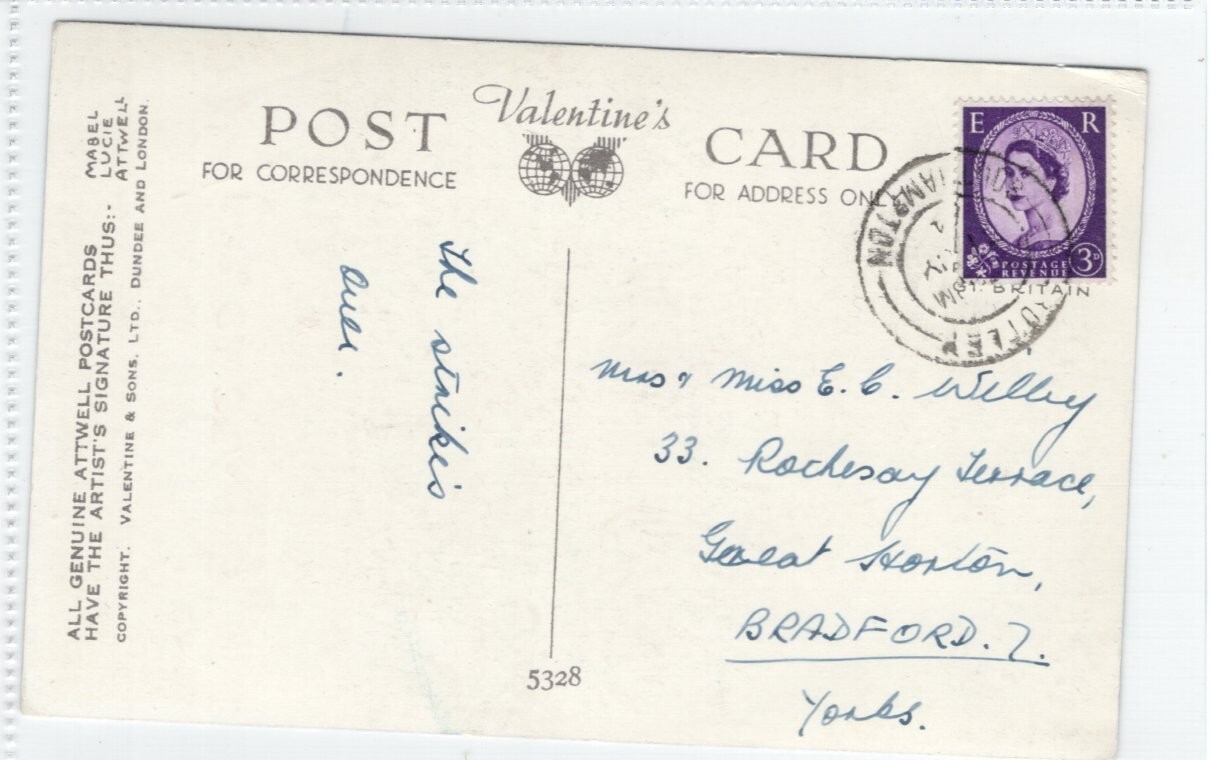 ALL GENUINE ATTWELL POSTCARDS
HAVE THE ARTIST'S SIGNATURE THUS:-
MABEL
LUCIE
ATTWELL
COPYRIGHT. VALENTINE & SONS. LTD., DUNDEE AND LONDON.
POST
Valentine's
CARD
FOR CORRESPONDENCE
FOR ADDRESS ONLY
E R
POSTAGE
REVENUE
3D
BRITAIN
ROTHLEY
The strike is
over.
Mrs & Miss E. C. Willey
33. Rothesay Terrace,
Great Horton,
BRADFORD. 7.
Yorks.
5328